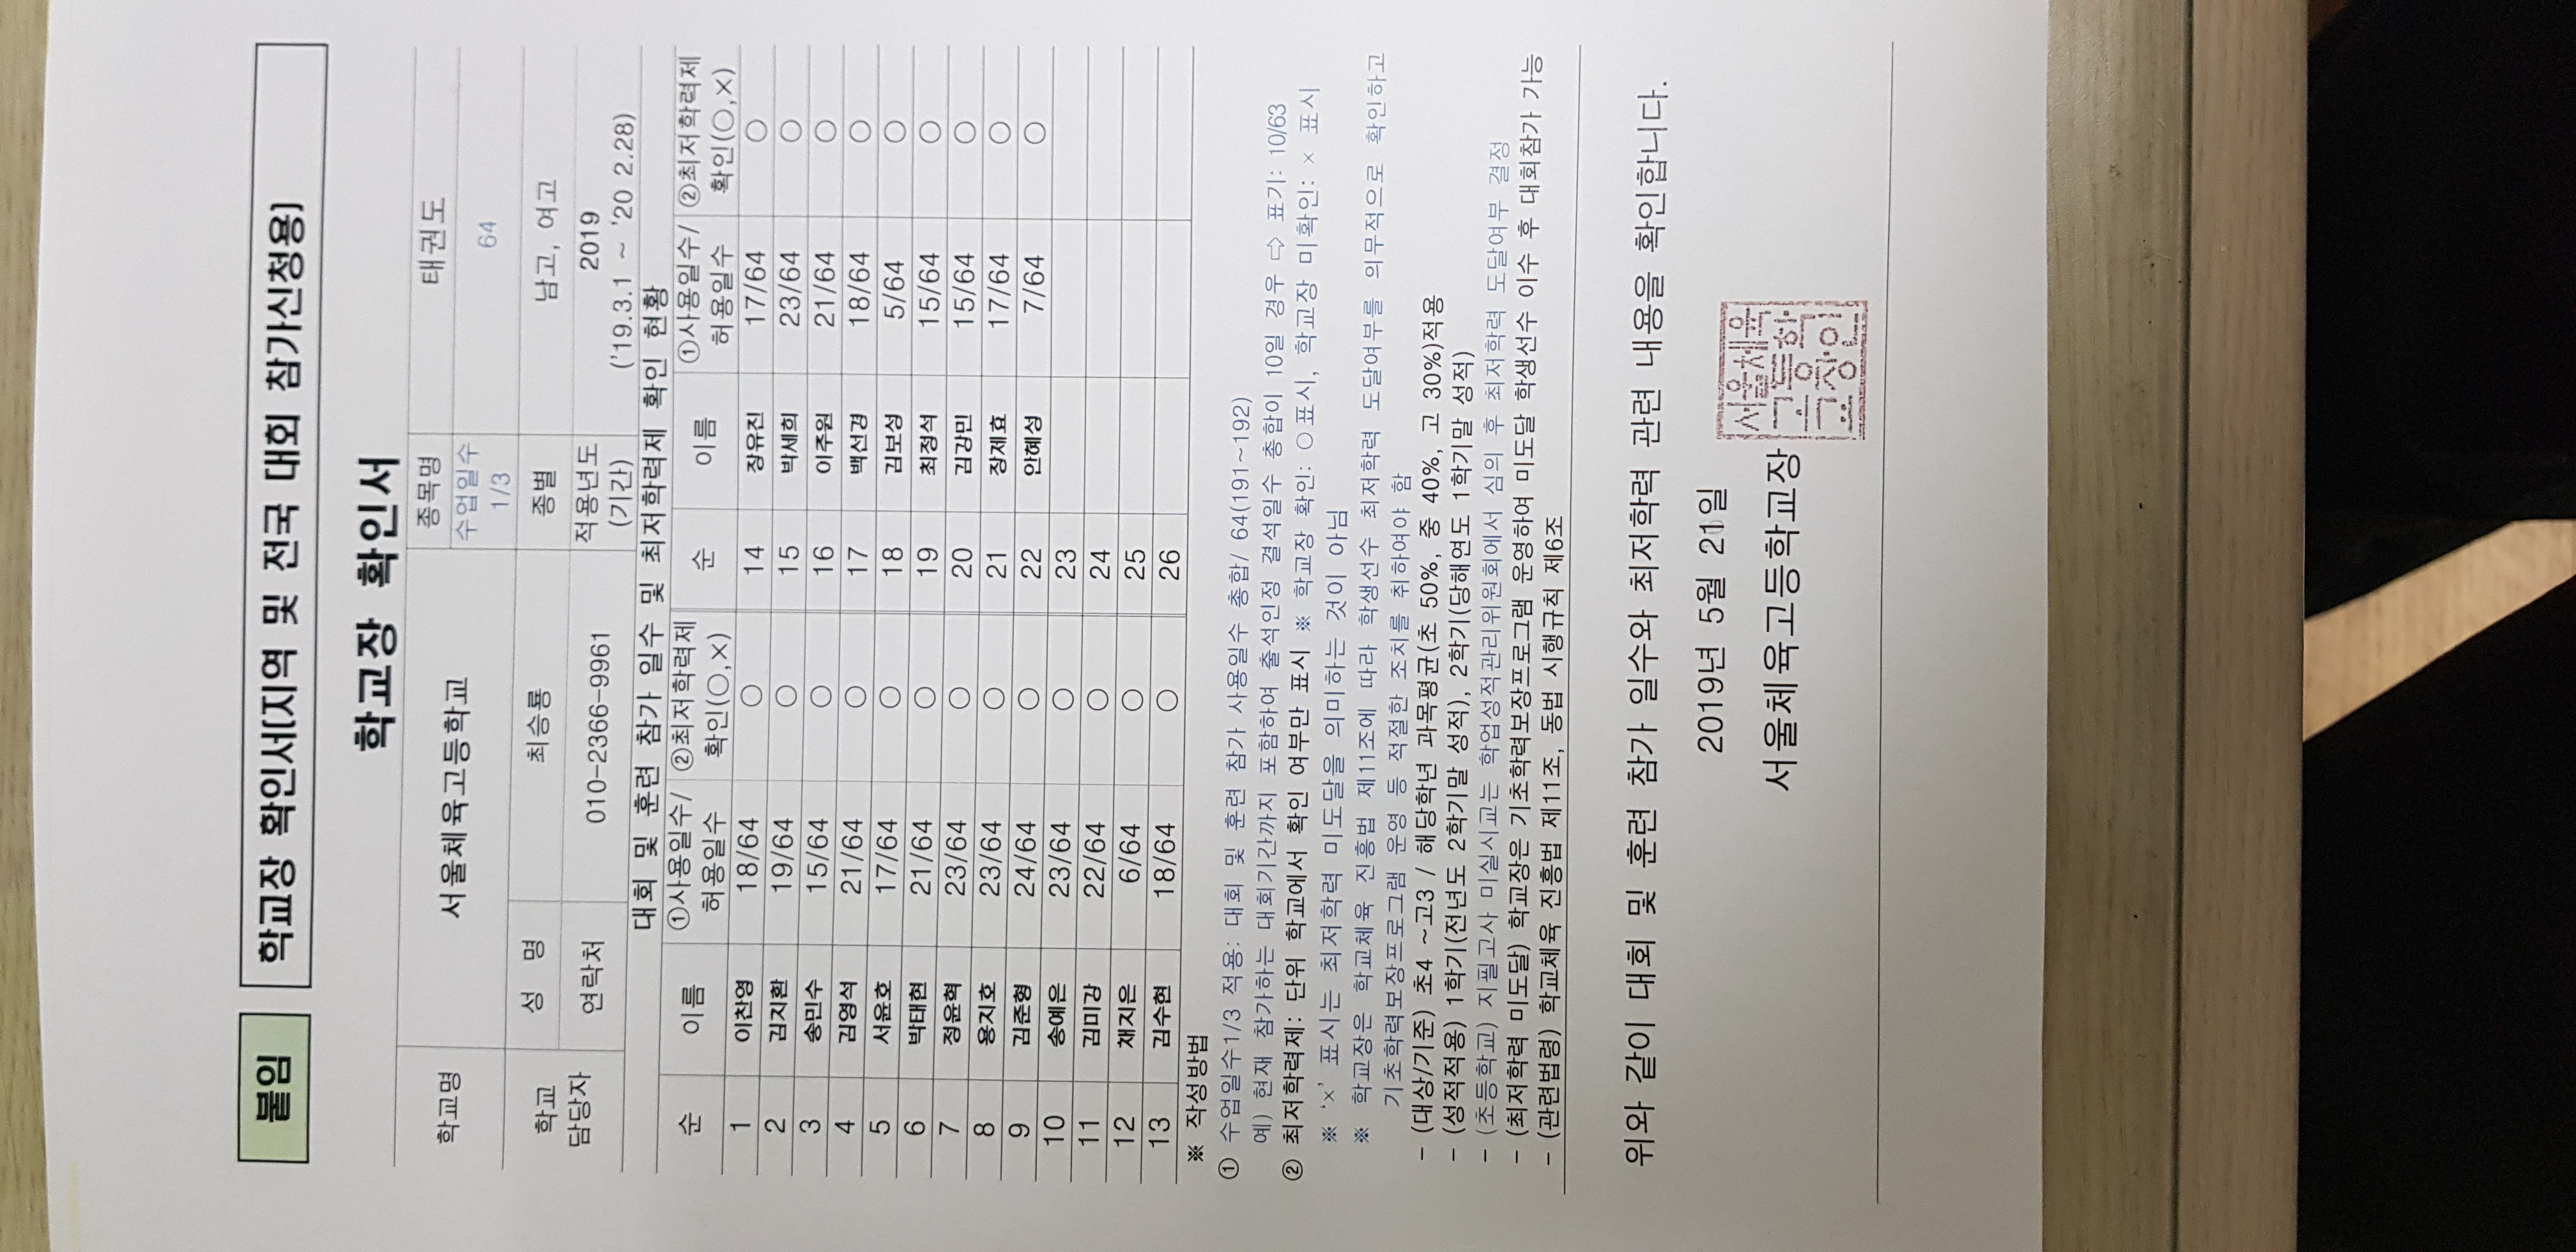 붙임 학교장 확인서(지역 및 전국 대회 참가신청용)
학교장 확인서
학교명 서울체육고등학교 종목명 태권도
수업일수 1/3 64
학교 담당자 성 명 최승룡 종별 남고, 여고
연락처 010-2366-9961 적용년도 (기간) 2019 ('19.3.1 ~ '20 2.28)
대회 및 훈련 참가 일수 및 최저학력제 확인 현황
순 이름 ①사용일수/ 허용일수 ②최저학력제 확인(○,×) 순 이름 ①사용일수/ 허용일수 ②최저학력제 확인(○,×)
1 이찬영 18/64 ○ 14 장유진 17/64 ○
2 김지환 19/64 ○ 15 박세희 23/64 ○
3 송민수 15/64 ○ 16 이주원 21/64 ○
4 김영석 21/64 ○ 17 백선경 18/64 ○
5 서윤호 17/64 ○ 18 김보성 5/64 ○
6 박태현 21/64 ○ 19 최정석 15/64 ○
7 정윤혁 23/64 ○ 20 김강민 15/64 ○
8 용지호 23/64 ○ 21 장제효 17/64 ○
9 김준형 24/64 ○ 22 안혜성 7/64 ○
10 송예은 23/64 ○ 23
11 김미강 22/64 ○ 24
12 채지은 6/64 ○ 25
13 김수현 18/64 ○ 26
※ 작성방법
① 수업일수1/3 적용: 대회 및 훈련 참가 사용일수 총합/ 64(191~192)
예) 현재 참가하는 대회기간까지 포함하여 출석인정 결석일수 총합이 10일 경우 ⇨ 표기: 10/63
② 최저학력제: 단위 학교에서 확인 여부만 표시 ※ 학교장 확인: ○표시, 학교장 미확인: × 표시
※ '×' 표시는 최저학력 미도달을 의미하는 것이 아님
※ 학교장은 학교체육 진흥법 제11조에 따라 학생선수 최저학력 도달여부를 의무적으로 확인하고
기초학력보장프로그램 운영 등 적절한 조치를 취하여야 함
- (대상/기준) 초4 ~고3 / 해당학년 과목평균(초 50%, 중 40%, 고 30%)적용
- (성적적용) 1학기(전년도 2학기말 성적), 2학기(당해연도 1학기말 성적)
- (초등학교) 지필고사 미실시교는 학업성적관리위원회에서 심의 후 최저학력 도달여부 결정
- (최저학력 미도달) 학교장은 기초학력보장프로그램 운영하여 미도달 학생선수 이수 후 대회참가 가능
- (관련법령) 학교체육 진흥법 제11조, 동법 시행규칙 제6조
위와 같이 대회 및 훈련 참가 일수와 최저학력 관련 내용을 확인합니다.
2019년 5월 21일
서울체육고등학교장
서울체육
고등학
교장인